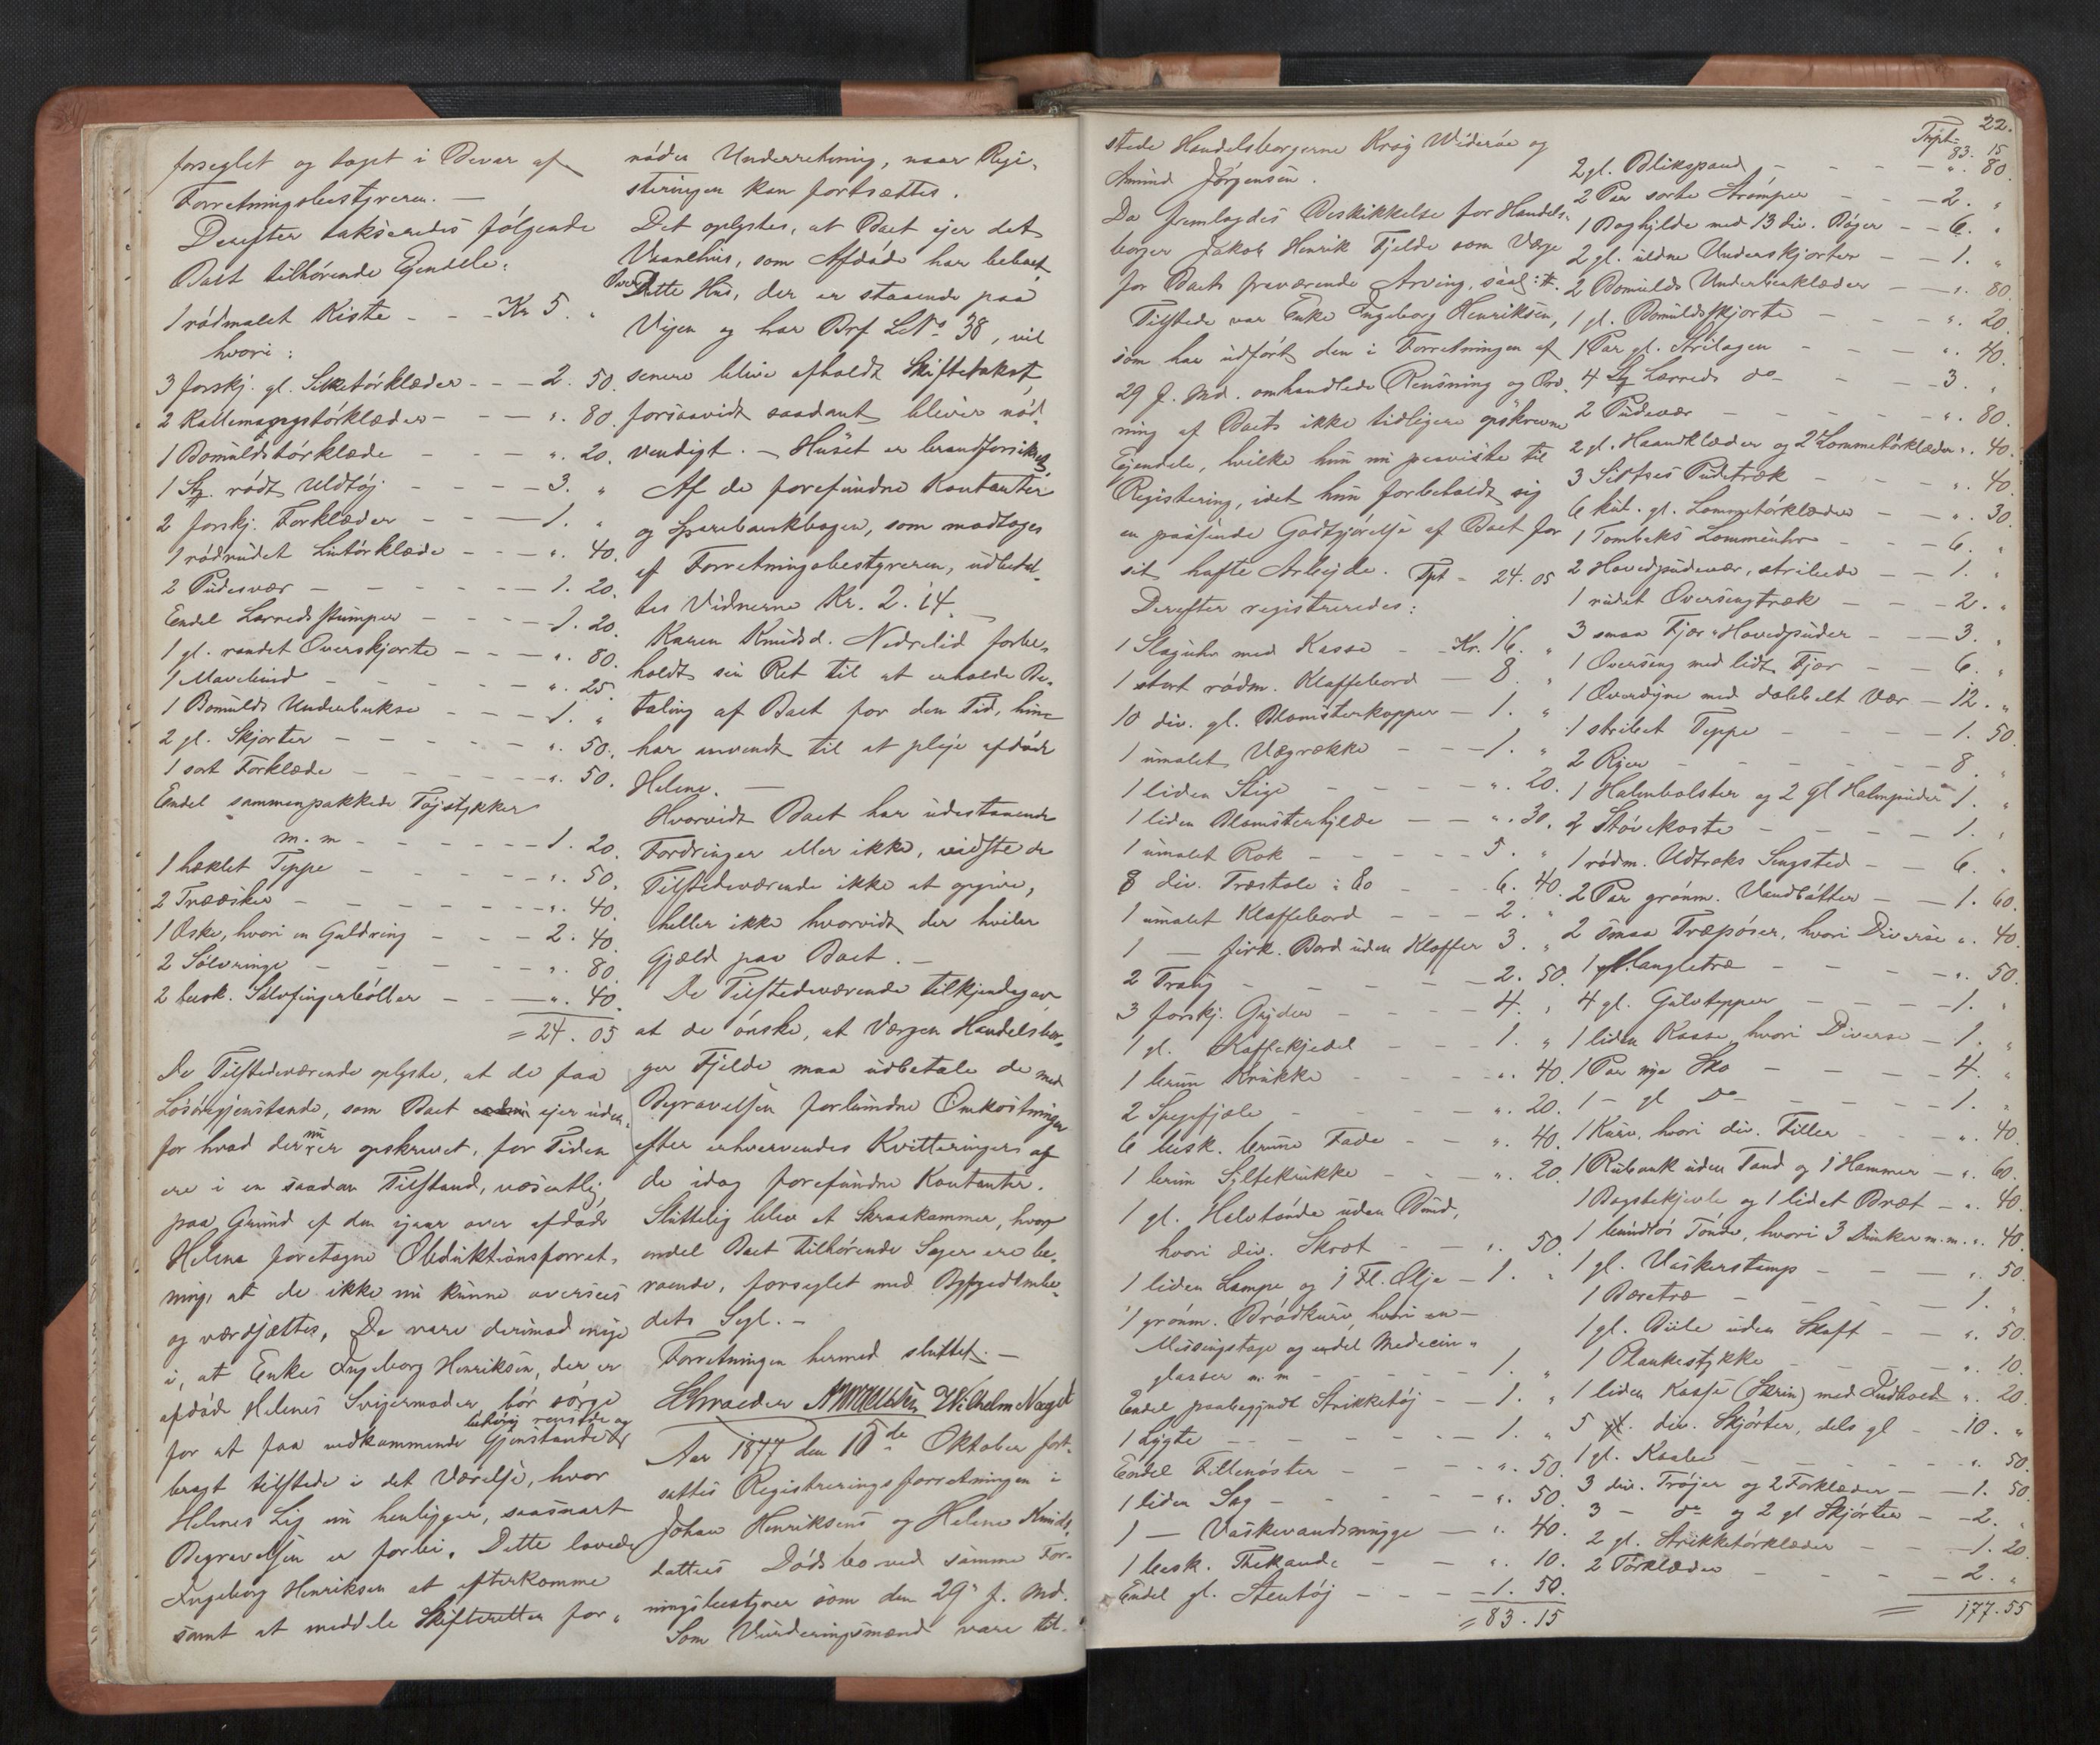 forseglet og taget i Bevar af
Forretningsbestyreren. —
Derefter takseredes følgende
Boet tilhørende Ejendele:
1 rødmalet Kiste - - Kr 5. "
hvori:
3 forskj. gl. Silketørklæder - - - 2. 50.
2 Kallemagrystørklæder - - - ". 80.
1 Bomuldstørklæde - - - ". 20.
1 Stk. rødt Uldtøj - - - - 3. "
2 forskj. Forklæder - - - 1. "
1 rødrudet Lintørklæde - - - ". 40.
2 Pudesvær - - - - - 1. 20.
Endel Lærredsstumper - - - - 1. 20.
1 gl. randet Overskjorte - - - ". 80.
1 Mavebind - - - - - ". 25.
1 Bomulds Underbukse - - - 1. "
2 gl. Skjorter - - - - - ". 50.
1 sort Forklæde - - - - - ". 50.
Endel sammenpakkede Tøjstykker
m. m - - - - - - 1. 20.
1 heklet Teppe - - - - - ". 50.
2 Trææsker - - - - - - ". 40.
1 Æske, hvori en Guldring - - - 2. 40.
2 Sølvringe - - - - - ". 80.
2 besk. Sølvfingerbøller - - - ". 40.
= 24. 05
De Tilstedeværende oplyste, at de faa
Løsøregjenstande, som Boet ejer uden-
for hvad der nu er opskrevet, for Tiden
ere i en saadan Tilstand, væsentlig
paa Grund af den igaar over afdøde
Helene foretagne Obduktionsforret-
ning, at de ikke nu kunne oversees
og værdsættes. De vare derimod enige
i, at Enke Ingeborg Henriksen, der er
afdøde Helenes Svigermoder, bør sørge
for at faa vedkommende Gjenstande behørig rensede og
bragt tilstede i det Værelse, hvor
Helenes Lig nu henligger, saasnart
Begravelsen er forbi. Dette lovede
Ingeborg Henriksen at efterkomme
samt at meddele Skifteretten for-
nøden Underretning, naar Regi-
streringen kan fortsættes.
Det oplystes, at Boet ejer det
Vaanehus, som Afdøde har beboet.
Over Dette Hus, der er staaende paa
Vigen og har Brf. L No 38, vil
senere blive afholdt Skiftetakst,
forsaavidt saadant bliver nød-
vendigt. — Huset er brandforsikret.
Af de forefundne Kontanter
og Sparebankbogen, som modtoges
af Forretningsbestyreren, udbetal-
tes Vidnerne Kr. 2. 14.
Karen Knudsd. Nedrelid forbe-
holdt sin Ret til at erholde Be-
taling af Boet for den Tid, hun
har anvendt til at pleje afdøde
Helene. —
Hvorvidt Boet har udestaaende
Fordringer eller ikke, vidste de
Tilstedeværende ikke at opgive,
heller ikke hvorvidt der hviler
Gjæld paa Boet. —
De Tilstedeværende tilkjendegav
at de ønske, at Værgen Handelsbor-
ger Fjelde maa udbetale de med
Begravelsen forbundne Omkostninger
efter erhvervendes Kvitteringer af
de idag forefundne Kontanter.
Sluttelig blev et Skraakammer, hvor
endel Boet tilhørende Sager ere be-
roende, forseglet med Byfogedembe-
dets Segl. —
Forretningen hermed sluttet. —
Schrøeder Wilhelm Nagel
Aar 1877 den 10de Oktober fort-
sattes Registreringsforretningen i
Johan Henriksens og Helene Knuds-
datters Dødsbo ved samme For-
ningsbestyrer som den 29" f. Md.
Som Vurderingsmænd vare til-
22.
stede Handelsborgerne Krog Widerøe og
Amund Jørgensen.
Da fremlagdes Beskikkelse for Handels-
borger Jakob Henrik Fjelde som Værge
for Boets fraværende Arving, saal:
Tilstede var Enke Ingeborg Henriksen,
som har udført den i Forretningen af
29 f. Md. omhandlede Rensning og Ord-
ning af Boets ikke tidligere opskrevne
Ejendele, hvilke hun nu paaviste til
Registrering, idet hun forbeholdt sig
en passende Godtgjørelse af Boet for
sit hafte Arbejde. Tpt - 24. 05
Derefter registreredes:
1 Slaguhr med Kasse - Kr. 16. "
1 stort rødm. Klaffebord - 8. "
10 div. gl. Blomsterkopper - 1. "
1 umalet Vægrække - - - 1. "
1 liden Stige - - - - ". 20.
1 liden Blomsterhylde - - ". 30.
1 umalet Rok - - - - 5. "
8 div. Træstole à 80 - - 6. 40.
1 umalet Klaffebord - - - 2. "
1 — firk. Bord uden Klaffer 3. "
2 Traug - - - - - 2. 50.
3 forskj. Gryder - - - - 4. "
1 gl. Kaffekjedel - - - 1. "
1 brun Krukke - - - - ". 40.
2 Spegefjæle - - - - ". 20.
6 besk. brune Fade - - - ". 40.
1 brun Syltekrukke - - - ". 20.
1 gl. Halvtønde uden Bund,
hvori div. Skrot - - - ". 50.
1 liden Lampe og 1 Fl. Olje - 1. "
1 grønm. Brødkurv, hvori en
Messingstage og endel Medecin-
glasser m. m - - - - 1. "
Endel paabegyndt Strikketøj - - 1. "
1 Lygte - - - - - - 1. "
Endel Fillenøster - - - - ". 50.
1 liden Sag - - - - - ". 50.
1 — Vaskevandsmugge - - ". 40.
1 besk. Thekande - - - ". 10.
Endel gl. Stentøj - - - - 1. 50.
= 83. 15
Trpt = 83. 15
2 gl. Blikspand - - - - ". 80.
2 Par sorte Strømper - - - 2. "
1 Boghylde med 13 div. Bøger - - 6. "
2 gl. uldne Underskjorter - - 1. "
2 Bomulds Underbenklæder - - ". 80.
1 gl. Bomuldsskjorte - - - ". 20.
1 Par gl. Strilagen - - - ". 40.
4 Stk Lærreds do - - - 3. "
2 Pudevær - - - - - ". 80.
2 gl. Haandklæder og 2 Lommetørklæder ". 40.
3 Sirtses Pudetræk - - - ". 40.
6 kul. gl. Lommetørklæder - - ". 30.
1 Tombaks Lommeuhr - - - 6. "
2 Hovedpudevær, stribede - - 1. "
1 rudet Oversengtræk - - - 2. "
3 smaa Fjær-Hovedpuder - - - 3. "
1 Overseng med lidt Fjær - - 6. "
1 Overdyne med dobbelt Vær - 12. "
1 stribet Teppe - - - - 1. 50.
2 Ryer - - - - - - 8. "
1 Halmbolster og 2 gl Halmpuder 1. "
2 Støvekoste - - - - - 1. "
1 rødm. Udtræks Sengsted - - 6. "
2 Par grønm. Vandbøtter - - 1. 60.
2 smaa Træpøser, hvori Diverse ". 40.
1 gl. Langletræ - - - - ". 50.
4 gl. Gulvtepper - - - - 1. "
1 liden Kasse, hvori Diverse - 1. "
1 Par nye Sko - - - - 4. "
1 — gl Do - - - - - 1. "
1 Kurv, hvori div. Filler - - ". 40.
1 Rubank uden Tand og 1 Hammer - ". 60.
1 Bagstekjevle og 1 lidet Bræt - ". 40.
1 bundløs Tønde, hvori 3 Dunker m.m. ". 40.
1 gl. Vaskerstamp - - - ". 50.
1 Bæretræ - - - - - 1. "
1 gl. Biile uden Skaft - - ". 50.
1 Plankestykke - - - - ". 10.
1 liden Kasse (Skrin) med Indhold ". 20.
5 div. Skjørter, dels gl - - 10. "
1 gl. Kaabe - - - - - ". 50.
3 div. Trøjer og 2 Forklæder - - 1. 50.
3 - do og 2 gl Skjørter - - 2. "
2 gl. Strikketørklæder - - - 1. 20.
2 Tørklæder - - - - - 2. "
= 177. 55